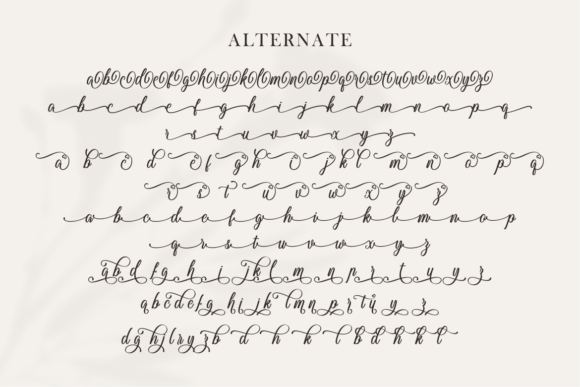 ALTERNATE
abcdefghijklmnopqrstuvwxyz
a b c d e f g h i j k l m n o p q
r s t u v w x y z
a b c d e f g h i j k l m n o p q
r s t u v w x y z
a b c d e f g h i j k l m n o p
q r s t u v w x y z
a b d f g h i j k l m n p r t u y z
a b c d e f g h i j k l m n p r t y z
d g h j l r y z b d h k l b d h k l